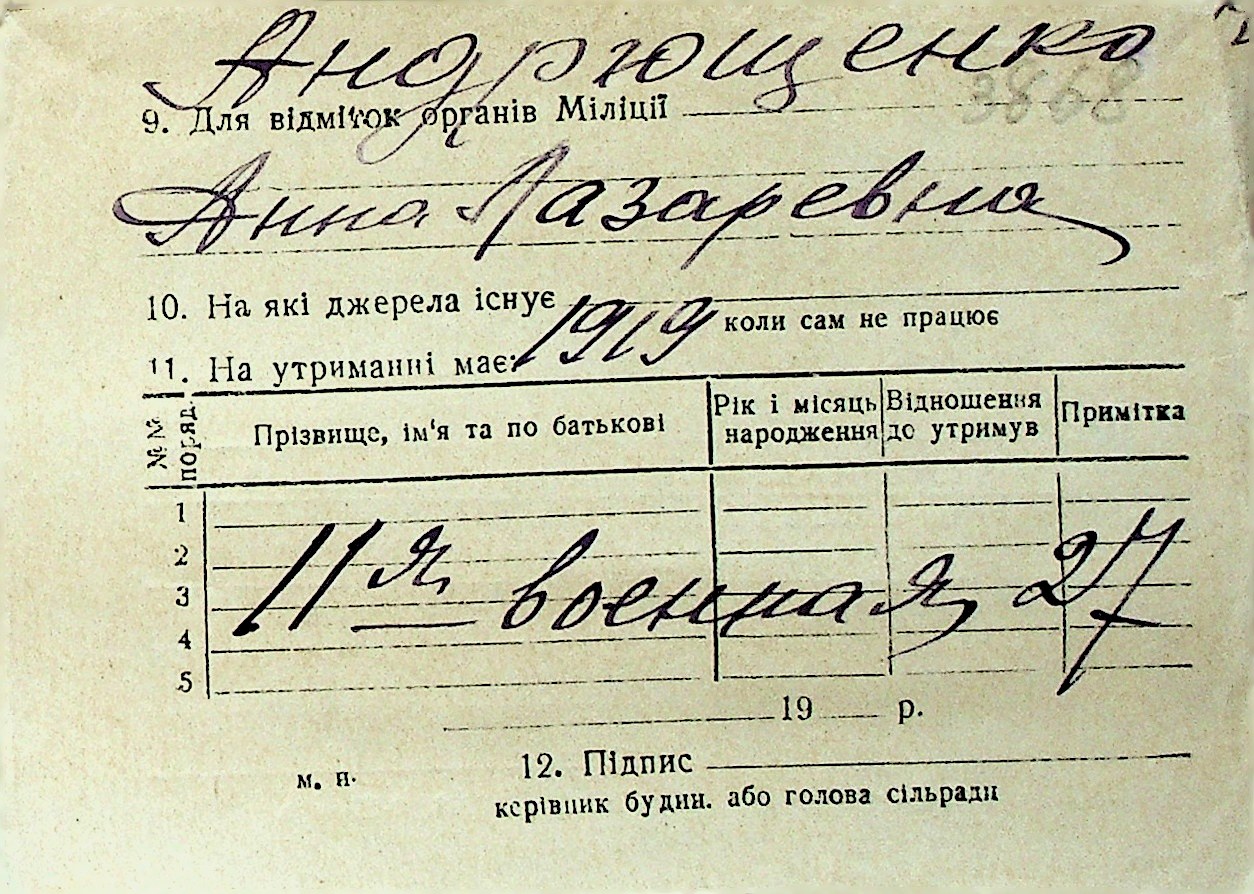 Андрющенко
3868
9. Для відміток органів Міліції
Анна Лазаревна
10. На які джерела існує
1919 коли сам не працює
11. На утриманні має:
№№ поряд. Прізвище, ім'я та по батькові Рік і місяць народження Відношення до утримув Примітка
1
2
11я военная 27
3
4
5
19 р.
12. Підпис
м. п.
керівник будин. або голова сільради